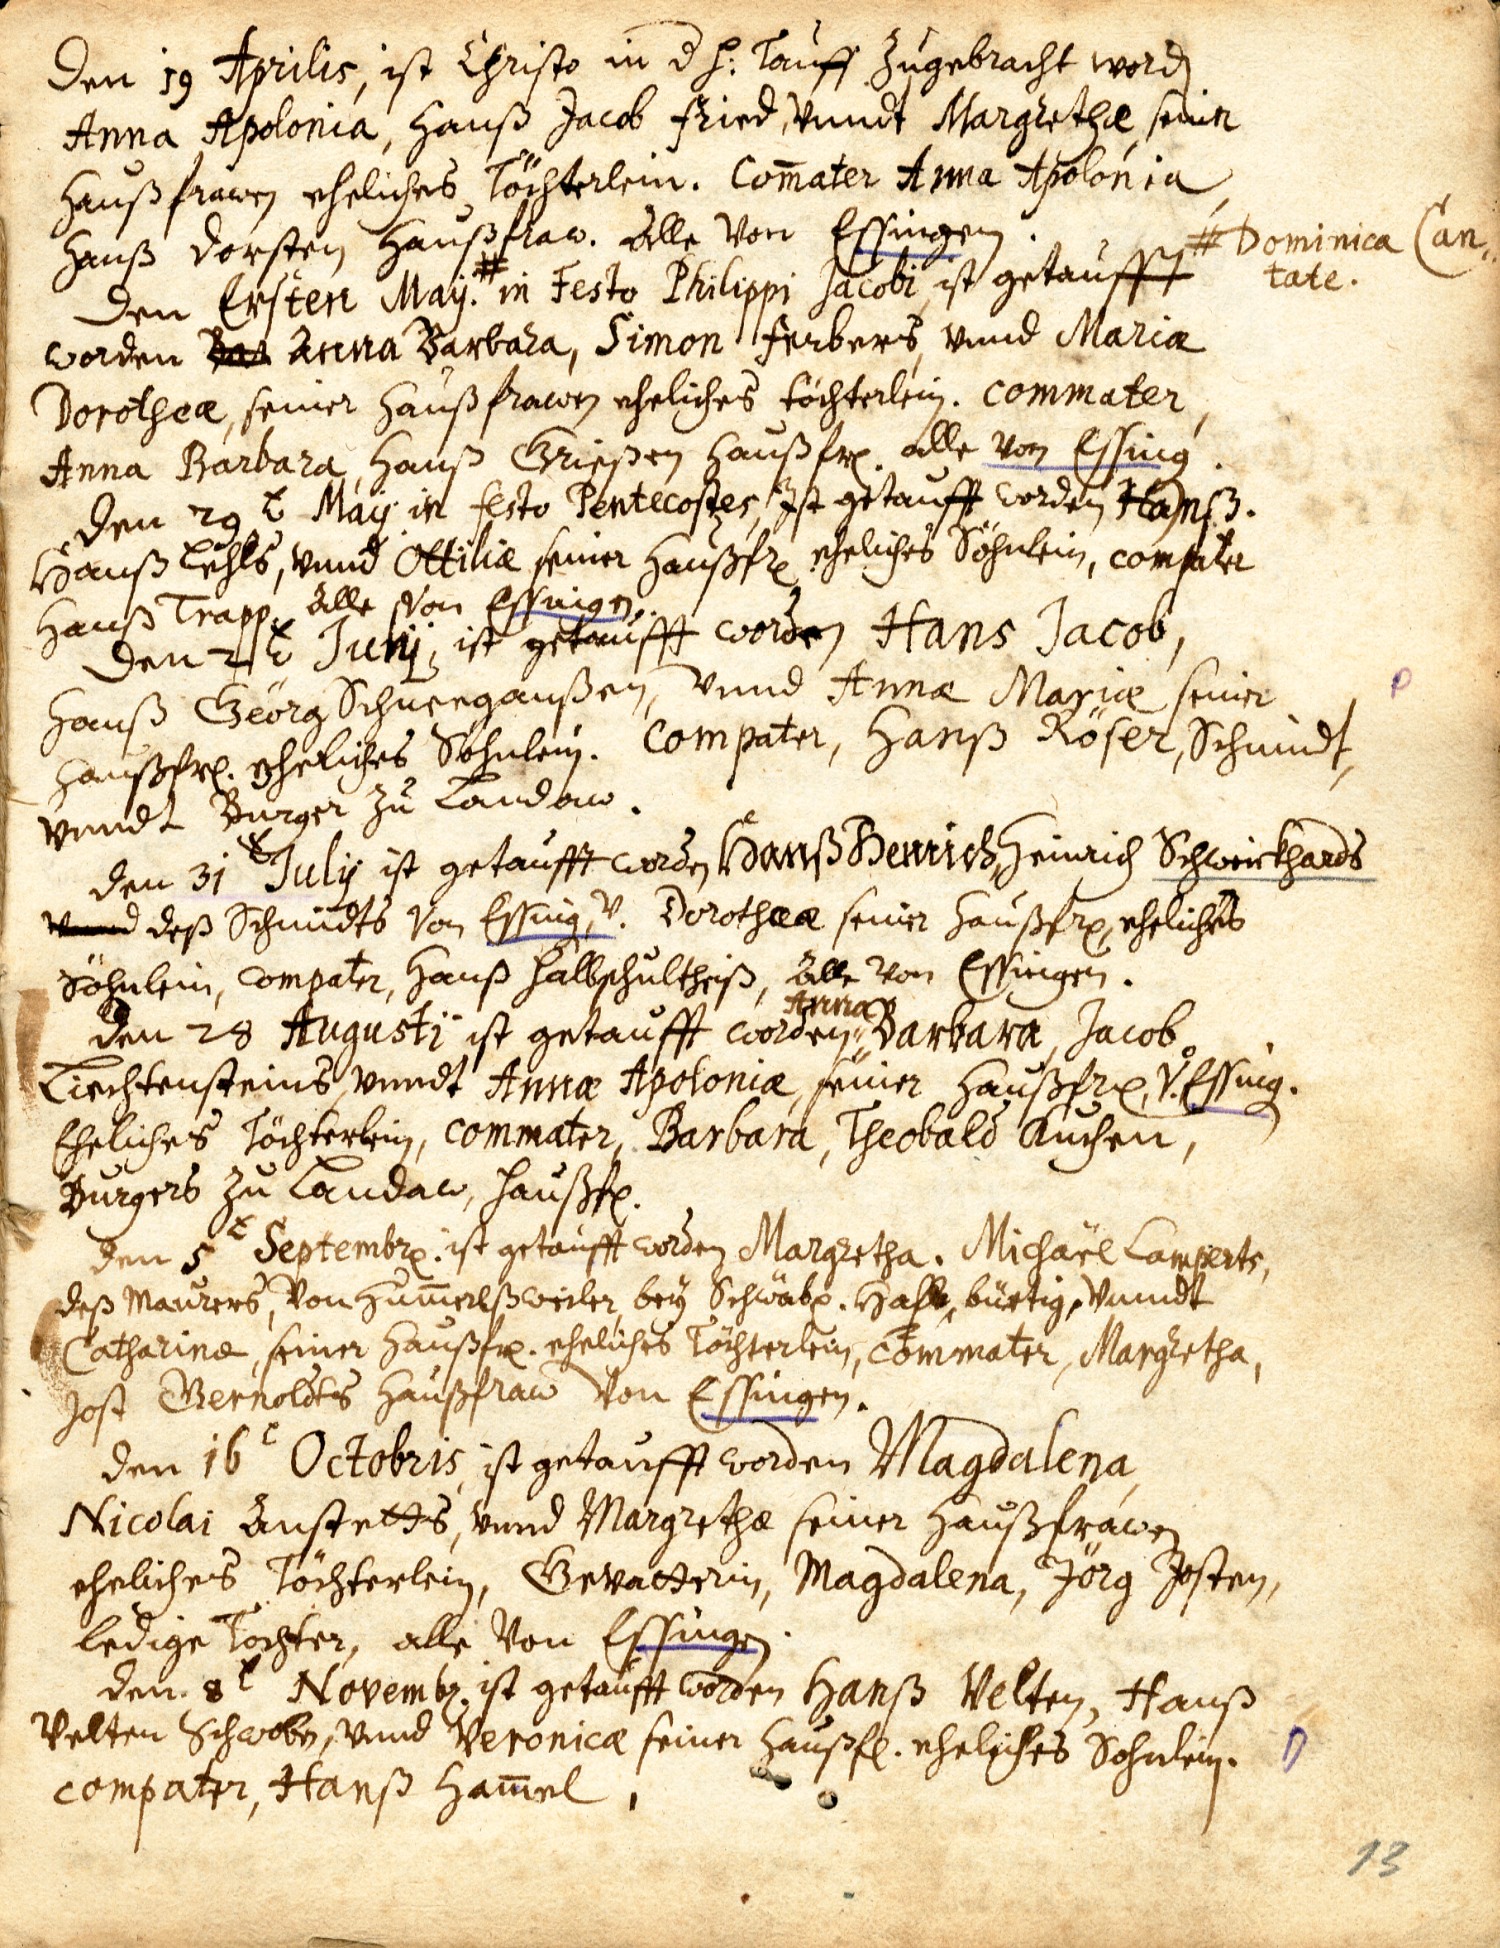 Den 19 Aprilis, ist Christo in d H: Tauff Zugebracht word
Anna Apolonia, Hanß Jacob Fried, vnndt Margrethæ, seiner
Haußfrawen eheliches Töchterlein. Com̄ater Anna Apolonia,
Hanß Dorsten Haußfraw. Alle Von Essingen.
Den Ersten Maij. # in Festo Philippi Jacobi ist getaufft
# Dominica Can-
tate.
worden Bar Anna Barbara, Simon Ferbers, vnnd Mariæ
Dorotheæ, seiner Haußfrawen eheliches töchterlein. Commater,
Anna Barbara, Hanß Grießen Haußfr. alle von Essing.
Den 29 t Maij in festo Pentecostes, Ist getaufft worden Hanß.
Hanß Lehls, vnnd Ottiliæ seiner Haußfr eheliches Söhnlein, compater
Hanß Trapp. Alle von Essingen.
Den 2 t Junij, ist getaufft worden Hans Jacob,
Hanß Geörg Schneeganßen, Vnnd Annæ Mariæ seiner
Haußfr. eheliches Söhnlein. Compater, Hanß Röser, Schmidt,
vnndt Burger zu Landaw.
Den 31 t Julij ist getaufft worden Hanß Henrich, Heinrich Schweickhards
vnnd deß Schmidts Von Essing, V. Dorotheæ seiner Haußfr, eheliches
Söhnlein, Compater, Hanß Halbschultheiß, Alle Von Essingen.
Anna
Den 28 Augusti ist getaufft worden Barbara, Jacob
Liechtensteins, vnndt Annæ Apoloniæ, seiner Haußfr, V. Essing.
Eheliches Töchterlein, Commater, Barbara, Theobald Kuchen,
Burgers zu Landaw, Haußfr.
Den 5 t Septembr. ist getaufft worden Margretha. Michaël Lamperts,
deß Maurers, Von Hum̄erßweiler, bey Schwäb. Hall, bürtig, Vnndt
Catharinæ, seiner Haußfr. eheliches Töchterlein, Commater, Margretha,
Jost Bernoldts Haußfraw Von Essingen.
Den 16 t Octobris, ist getaufft worden Magdalena,
Nicolai Anstetts, vnnd Margrethæ seiner Haußfrawen
eheliches Töchterlein, Gevatterin, Magdalena, Jörg Josten,
ledige Tochter, alle Von Essingen.
Den 8 t Novembr. ist getaufft worden Hanß Velten, Hanß
Velten Schwoben, vnnd Veronicæ seiner Haußfr. eheliches Söhnlein.
Compater, Hanß Ham̄el.
13